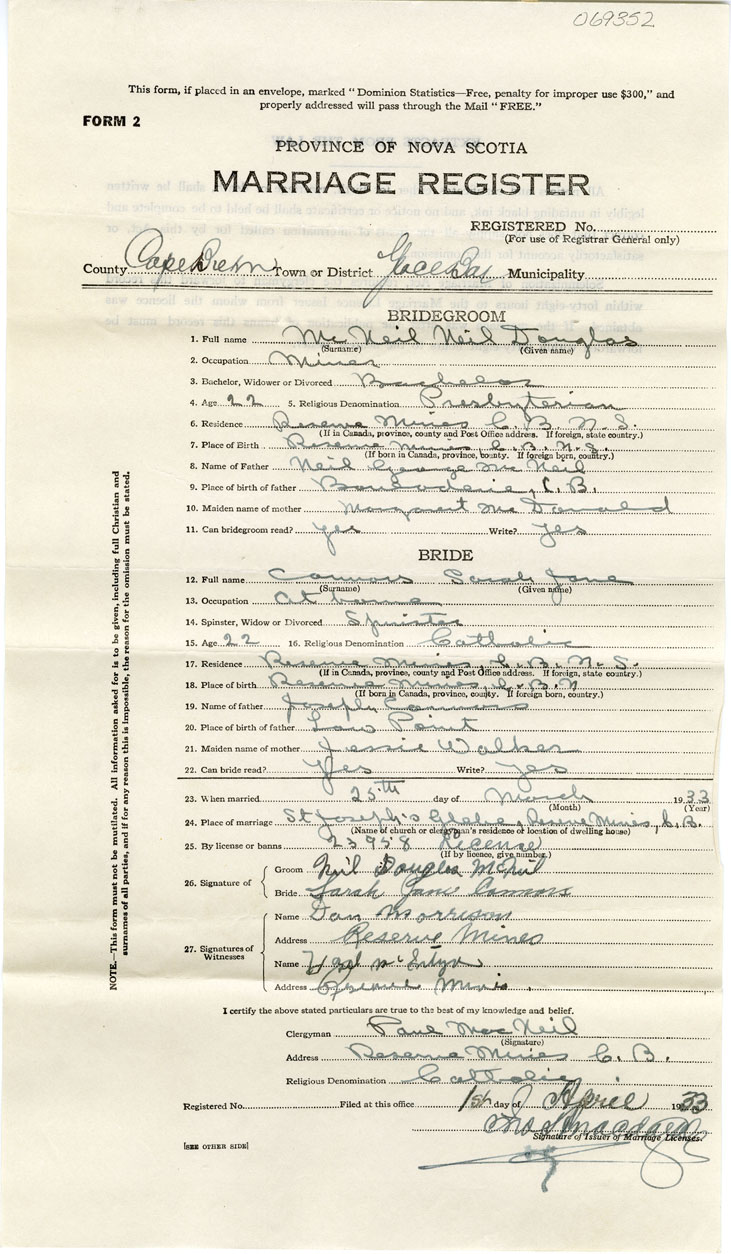 069352
This form, if placed in an envelope, marked "Dominion Statistics—Free, penalty for improper use $300," and
properly addressed will pass through the Mail "FREE."
FORM 2
PROVINCE OF NOVA SCOTIA
MARRIAGE REGISTER
REGISTERED No.
(For use of Registrar General only)
County Cape Breton Town or District Glace Bay Municipality
BRIDEGROOM
1. Full name McNeil Neil Douglas
(Surname) (Given name)
2. Occupation Miner
3. Bachelor, Widower or Divorced Bachelor
4. Age 22 5. Religious Denomination Presbyterian
6. Residence Reserve Mines C. B. N. S.
(If in Canada, province, county and Post Office address. If foreign, state country.)
7. Place of Birth Reserve Mines, C. B. N. S.
(If born in Canada, province, county. If foreign born, country.)
8. Name of Father Neil George McNeil
9. Place of birth of father Boularderie, C. B.
10. Maiden name of mother Margaret McDonald
11. Can bridegroom read? yes Write? yes
BRIDE
12. Full name Connors Sarah Jane
(Surname) (Given name)
13. Occupation At home
14. Spinster, Widow or Divorced Spinster
15. Age 22 16. Religious Denomination Catholic
17. Residence Reserve Mines, C. B. N. S.
(If in Canada, province, county and Post Office address. If foreign, state country.)
18. Place of birth Reserve Mines, C. B. N
(If born in Canada, province, county. If foreign born, country.)
19. Name of father Joseph Connors
20. Place of birth of father Low Point
21. Maiden name of mother Jessie Walker
22. Can bride read? Yes Write? Yes
23. When married 25th day of March 1933
(Month) (Year)
24. Place of marriage St Joseph's Glebe, Reserve Mines, C. B.
(Name of church or clergyman's residence or location of dwelling house)
25. By license or banns 25958 License
(If by licence, give number.)
26. Signature of
Groom Neil Douglas McNeil
Bride Sarah Jane Connors
27. Signatures of Witnesses
Name Dan Morrison
Address Reserve Mines
Name
Address Reserve Mines
I certify the above stated particulars are true to the best of my knowledge and belief.
Clergyman Paul MacNeil
(Signature)
Address Reserve Mines C. B.
Religious Denomination Catholic
Registered No. Filed at this office 1st day of April 1933
Signature of Issuer of Marriage Licenses.
[SEE OTHER SIDE]
NOTE.—This form must not be mutilated. All information asked for is to be given, including full Christian and
surnames of all parties, and if for any reason this is impossible, the reason for the omission must be stated.